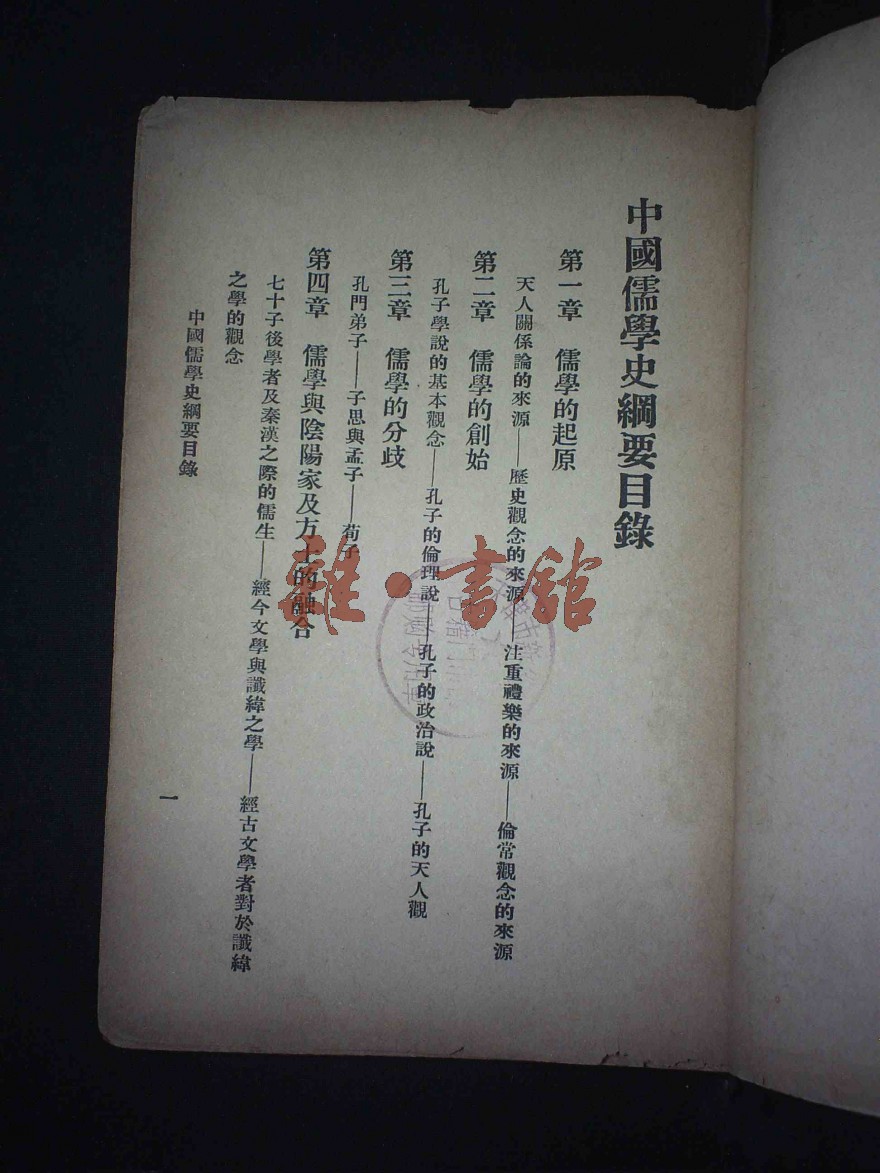 中國儒學史綱要目錄
第一章　儒學的起原
天人關係論的來源——歷史觀念的來源——注重禮樂的來源——倫常觀念的來源
第二章　儒學的創始
孔子學說的基本觀念——孔子的倫理說——孔子的政治說——孔子的天人觀
第三章　儒學的分歧
孔門弟子——子思與孟子——荀子
第四章　儒學與陰陽家及方士的融合
七十子後學者及秦漢之際的儒生——經今文學與讖緯之學——經古文學者對於讖緯
之學的觀念
中國儒學史綱要目錄
一
雜·書館